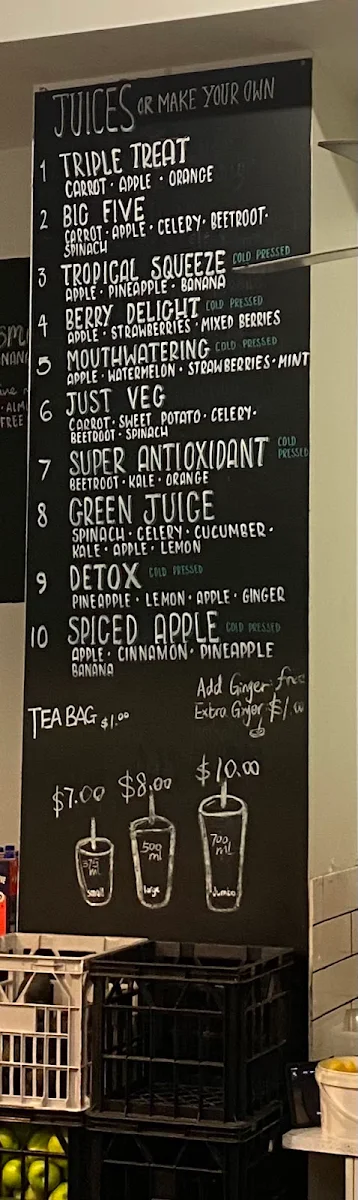 JUICES OR MAKE YOUR OWN
1 TRIPLE TREAT
CARROT · APPLE · ORANGE
2 BIG FIVE
CARROT · APPLE · CELERY · BEETROOT ·
SPINACH
3 TROPICAL SQUEEZE COLD PRESSED
APPLE · PINEAPPLE · BANANA
4 BERRY DELIGHT COLD PRESSED
APPLE · STRAWBERRIES · MIXED BERRIES
5 MOUTHWATERING COLD PRESSED
APPLE · WATERMELON · STRAWBERRIES · MINT
6 JUST VEG
CARROT · SWEET POTATO · CELERY ·
BEETROOT · SPINACH
7 SUPER ANTIOXIDANT COLD PRESSED
BEETROOT · KALE · ORANGE
8 GREEN JUICE
SPINACH · CELERY · CUCUMBER ·
KALE · APPLE · LEMON
9 DETOX COLD PRESSED
PINEAPPLE · LEMON · APPLE · GINGER
10 SPICED APPLE COLD PRESSED
APPLE · CINNAMON · PINEAPPLE
BANANA
Add Ginger free
Extra Ginger $1.00
TEA BAG $1.00
$7.00 $8.00 $10.00
375 ml small
500 ml large
700 ml Jumbo